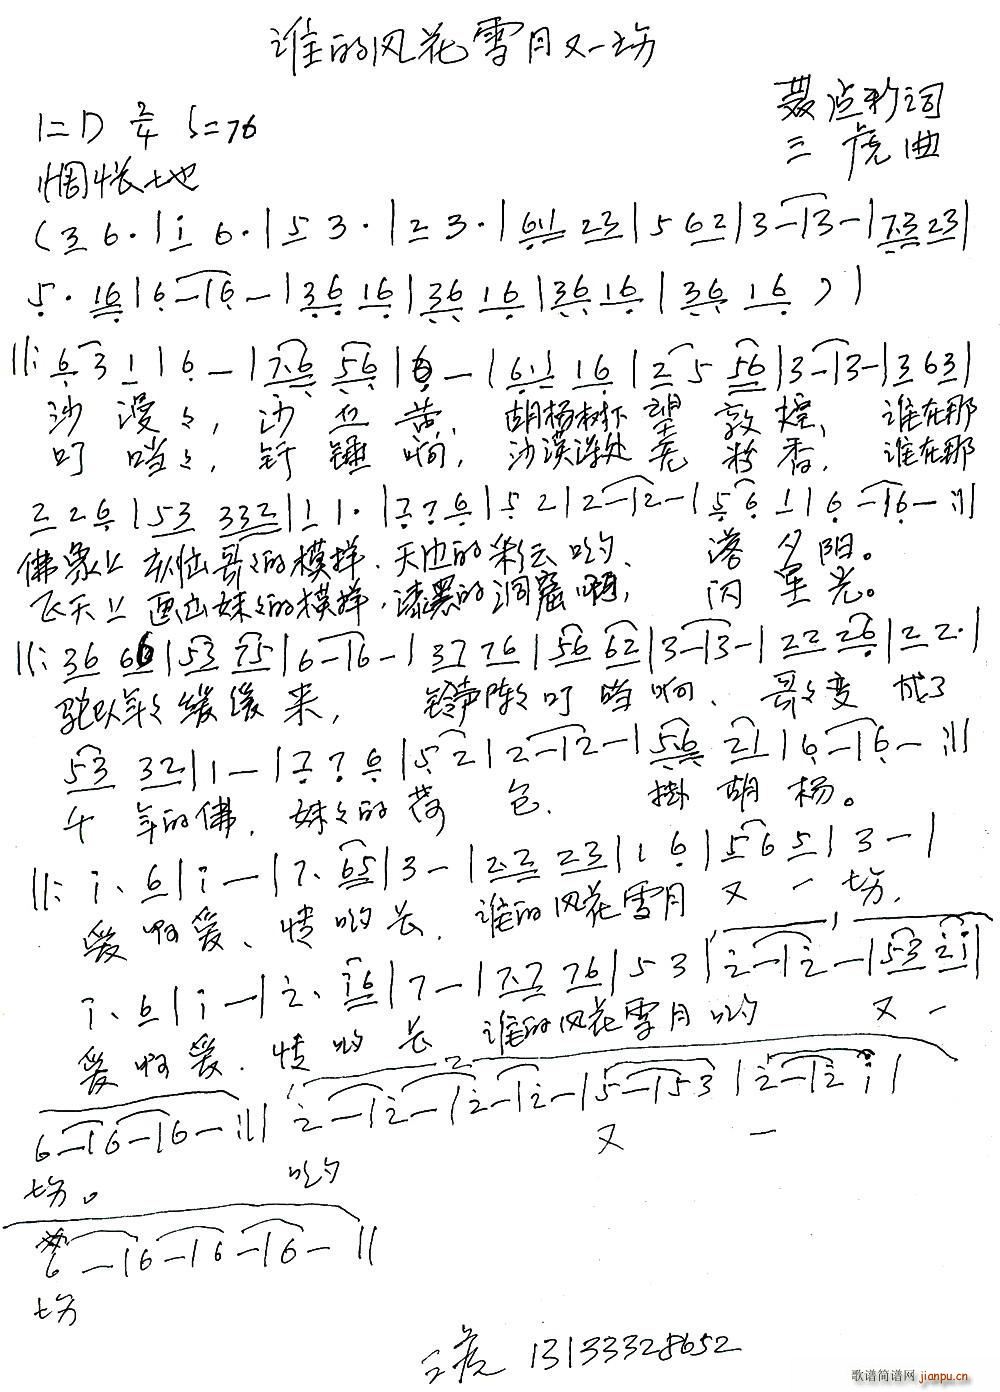 谁的风花雪月又一场
1=D 2/4 ♩=76
聂 词
三虎曲
惆怅地
(3 6·|i 6·|5 3·|2 3·|61 23|5 62|3-|3-|7·3 23|
5·16|6-|6-|36 16|36 16|36 16|36 16)|
||:6 3 1|6-|7·6 56|6-|6·1 16|2 5 56|3-|3-|3 63|
沙漫々,沙也苦,胡杨树下望敦煌,谁在那
叮当々,钎锤响,沙漠深处 粉香,谁在那
2 2 6|53 332|1 1·|7 7 6|5 2|2-|2-|5 6 1|6-|6-:||
佛象上 哥々的模样.天边的彩云哟、落夕阳。
飞天上画出妹々的模样,漆黑的洞窟啊,闪星光。
||:36 66|53 75|6-|6-|37 76|56 62|3-|3-|22 26|2 2·|
驼队年々缓缓来,铃声阵々叮当响、哥々变成了
53 32|1-|7 7 6|5 2|2-|2-|5·6 21|6-|6-:||
千年的佛,妹々的荷包、掛胡杨。
||:i·6|i-|7·65|3-|2·2 23|1 6|5 6 5|3-|
爱啊爱、情哟长.谁的风花雪月又一场,
i·6|i-|2·i6|7-|7·7 76|5 3|2-|2-|53 2i|
爱啊爱.情哟长 谁的风花雪月哟 又一
6-|6-|6-:|| 2-|2-|2-|2-|5-|5 3|2-|2 i|
场。哟 又一
6-|6-|6-|6-||
场
三虎 13133328652
歌谱简谱网
jianpu.cn